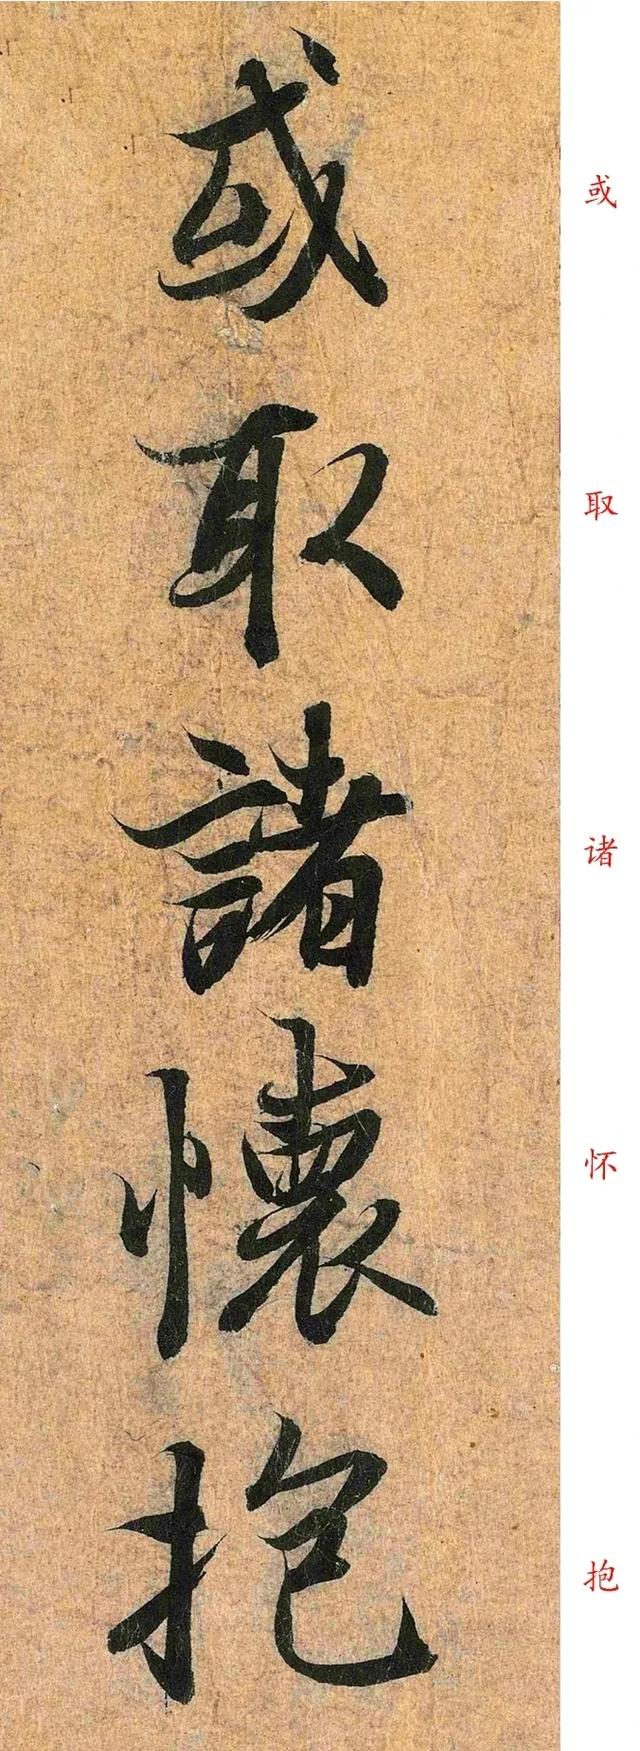 或取諸懷抱
或
取
诸
怀
抱